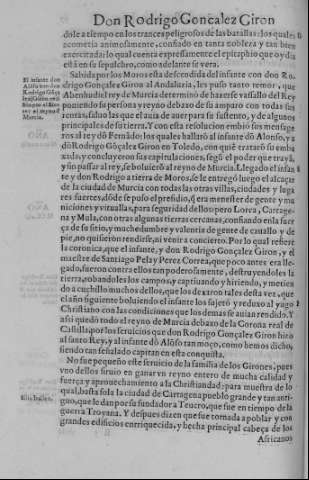 Don Rodrigo Gonçalez Giron
dole a tiempo en los trances peligrosos de las batallas: los quales
acometia animosamente, confiado en tanta nobleza y tan bien
exercitada: lo qual cuenta expressamente el epitaphio que oy dia
està en su sepulchro, como adelante se vera.
Sabida por los Moros esta descendida del infante con don Ro
drigo Gonçalez Giron al Andaluzia, les puso tanto temor, que
Abenhudiel rey de Murcia determinò de hazerse vasallo del Rey
poniendo su persona y reyno debaxo de su amparo con todas sus
rentas, saluo las que el auia de auer para su sustento, y de algunos
principales de su tierra. Y con esta resolucion embiò sus mensage
ros al rey dõ Fernãdo: los quales hallarõ al infante dõ Alonso, y a
dõ Rodrigo Gõçalez Giron en Toledo, con quiẽ trataron su emba
xada, y concluyeron sus capitulaciones, segũ el poder que trayã,
y sin passar al rey, se boluierõ al reyno de Murcia. Llegado el infan
te y don Rodrigo a tierra de Moros, se le entregò luego el alcaçar
de la ciudad de Murcia con todas las otras villas, ciudades y luga
res fuertes, dõde se puso el presidio, q̃ era menester de gente y mu
niciones y vitualla, para seguridad dellos: pero Lorca, Cartage-
na y Mula, con otras algunas tierras cercanas, confiando en la fuer
ça de su sitio, y muchedumbre y valentia de gente de cauallo y de
pie, no quisieron rendirse, ni venir a concierto. Por lo qual refiere
la coronica, que el infante, y don Rodrigo Gonçalez Giron, y el
maestre de Santiago Pelay Perez Correa, que poco antes era lle-
gado, fueron contra ellos tan poderosamente, destruyendoles la
tierra, robandoles los campos, y captiuando y hiriendo, y metien
do a cuchillo muchos dellos, que los dexaron tales desta vez, que
el año siguiente boluiendo el infante los sujetò y reduxo al yugo
Christiano con las condiciones que los demas se auian rendido. Y
assi quedò todo el reyno de Murcia debaxo de la Corona real de
Castilla, por los seruicios que don Rodrigo Gonçalez Giron hizo
al santo Rey, y al infante dõ Alõso tan moço, como hemos dicho,
siendo tan señalado capitan en esta conquista.
No fue pequeño este seruicio de la familia de los Girones, pues
vno dellos siruio en ganar vn reyno entero de mucha calidad y
fuerça y aprouechamiento a la Christiandad: para muestra de lo
qual, basta sola la ciudad de Cartagena pueblo grande y tan anti-
guo, que le dan por su fundador a Teucro, que fue en tiempo de la
guerra Troyana. Y despues dizen que fue tornada a poblar y con
grandes edificios enriquecida, y hecha principal cabeça de los
Africanos
El infante don
Alõso con don
Rodrigo Gõça
Murcia.